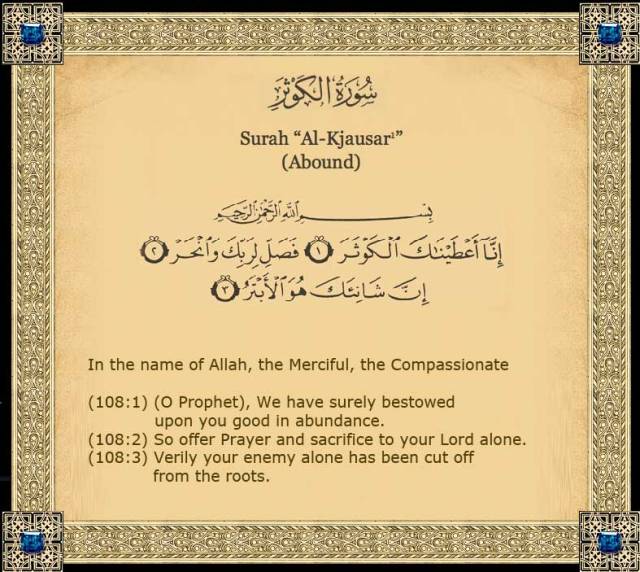 سُورَةُ الكَوْثَرِ
Surah “Al-Kjausar¹”
(Abound)
بِسْمِ اللَّهِ الرَّحْمَٰنِ الرَّحِيمِ
إِنَّآ أَعْطَيْنَٰكَ ٱلْكَوْثَرَ ١ فَصَلِّ لِرَبِّكَ وَٱنْحَرْ ٢
إِنَّ شَانِئَكَ هُوَ ٱلْأَبْتَرُ ٣
In the name of Allah, the Merciful, the Compassionate
(108:1) (O Prophet), We have surely bestowed
upon you good in abundance.
(108:2) So offer Prayer and sacrifice to your Lord alone.
(108:3) Verily your enemy alone has been cut off
from the roots.